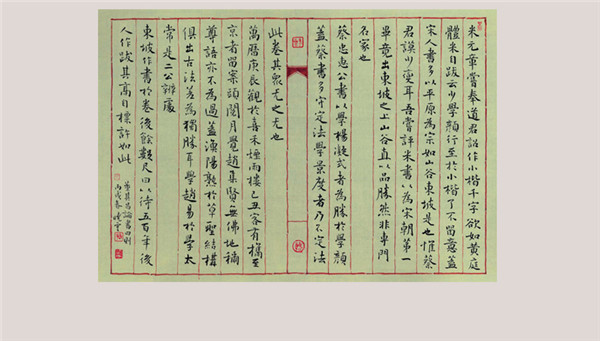 米元章嘗奉道君詔作小楷千字欲如黃庭
體米自跋云少學顏行至於小楷了不留意蓋
宋人書多以平原為宗如山谷東坡是也惟蔡
君謨少變耳吾嘗評米書以為宋朝第一
畢竟出東坡之上山谷直以品勝然非專門
名家也
蔡忠惠公書以學楊凝式者為勝於學顏
蓋蔡書多守定法學景度者乃不定法
此卷其尤之尤也
萬曆庚辰觀於嘉禾煙雨樓己丑客有攜至
京者留案頭閱月覺趙集賢無佛地稱
尊語亦不為過蓋漁陽熟於草聖結構
俱出古法差為獨勝耳學趙易於學太
常是二公辨處
東坡作書於卷後餘數尺曰以待五百年後
人作跋其高自標許如此
董其昌論書四則
丙戌春